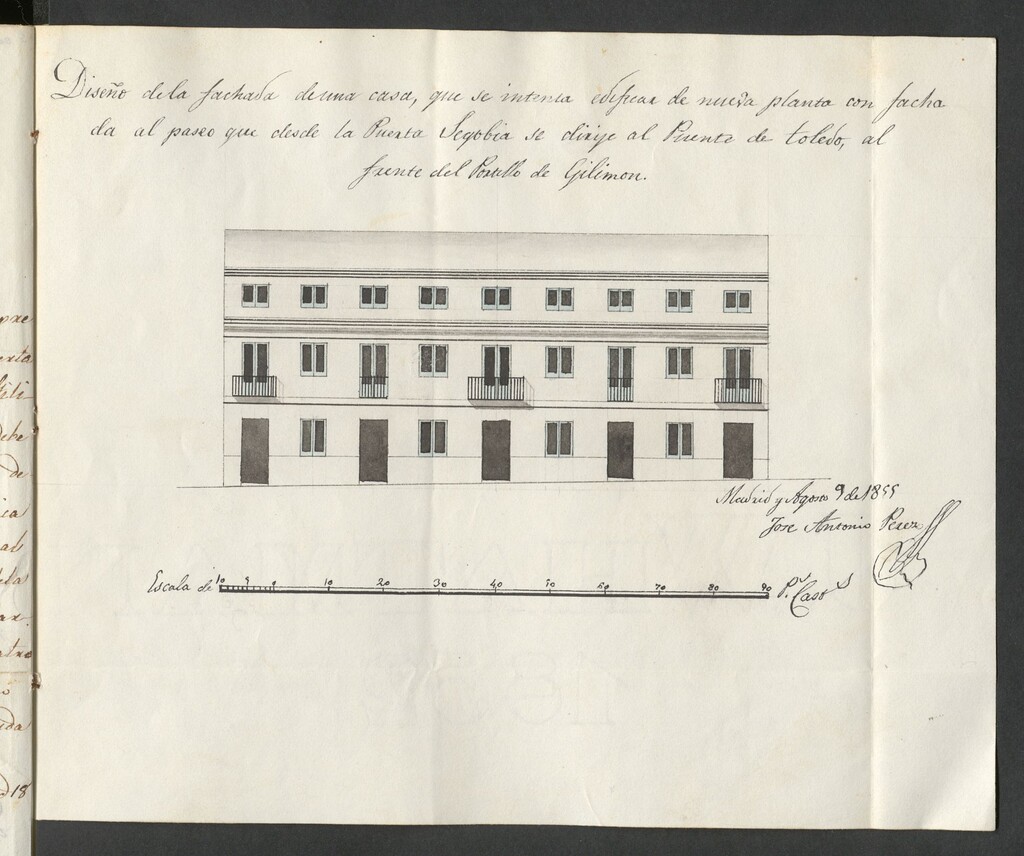 Diseño dela fachada deuna casa, que se intenta edificar de nueva planta con facha
da al paseo que desde la Puerta Segobia se dirije al Puente de toledo, al
frente del Portillo de Gilimon.
Madrid y Agosto 9 de 1855
Jose Antonio Perez
Escala de 10 5 0 10 20 30 40 50 60 70 80 90 P.s Cast.s